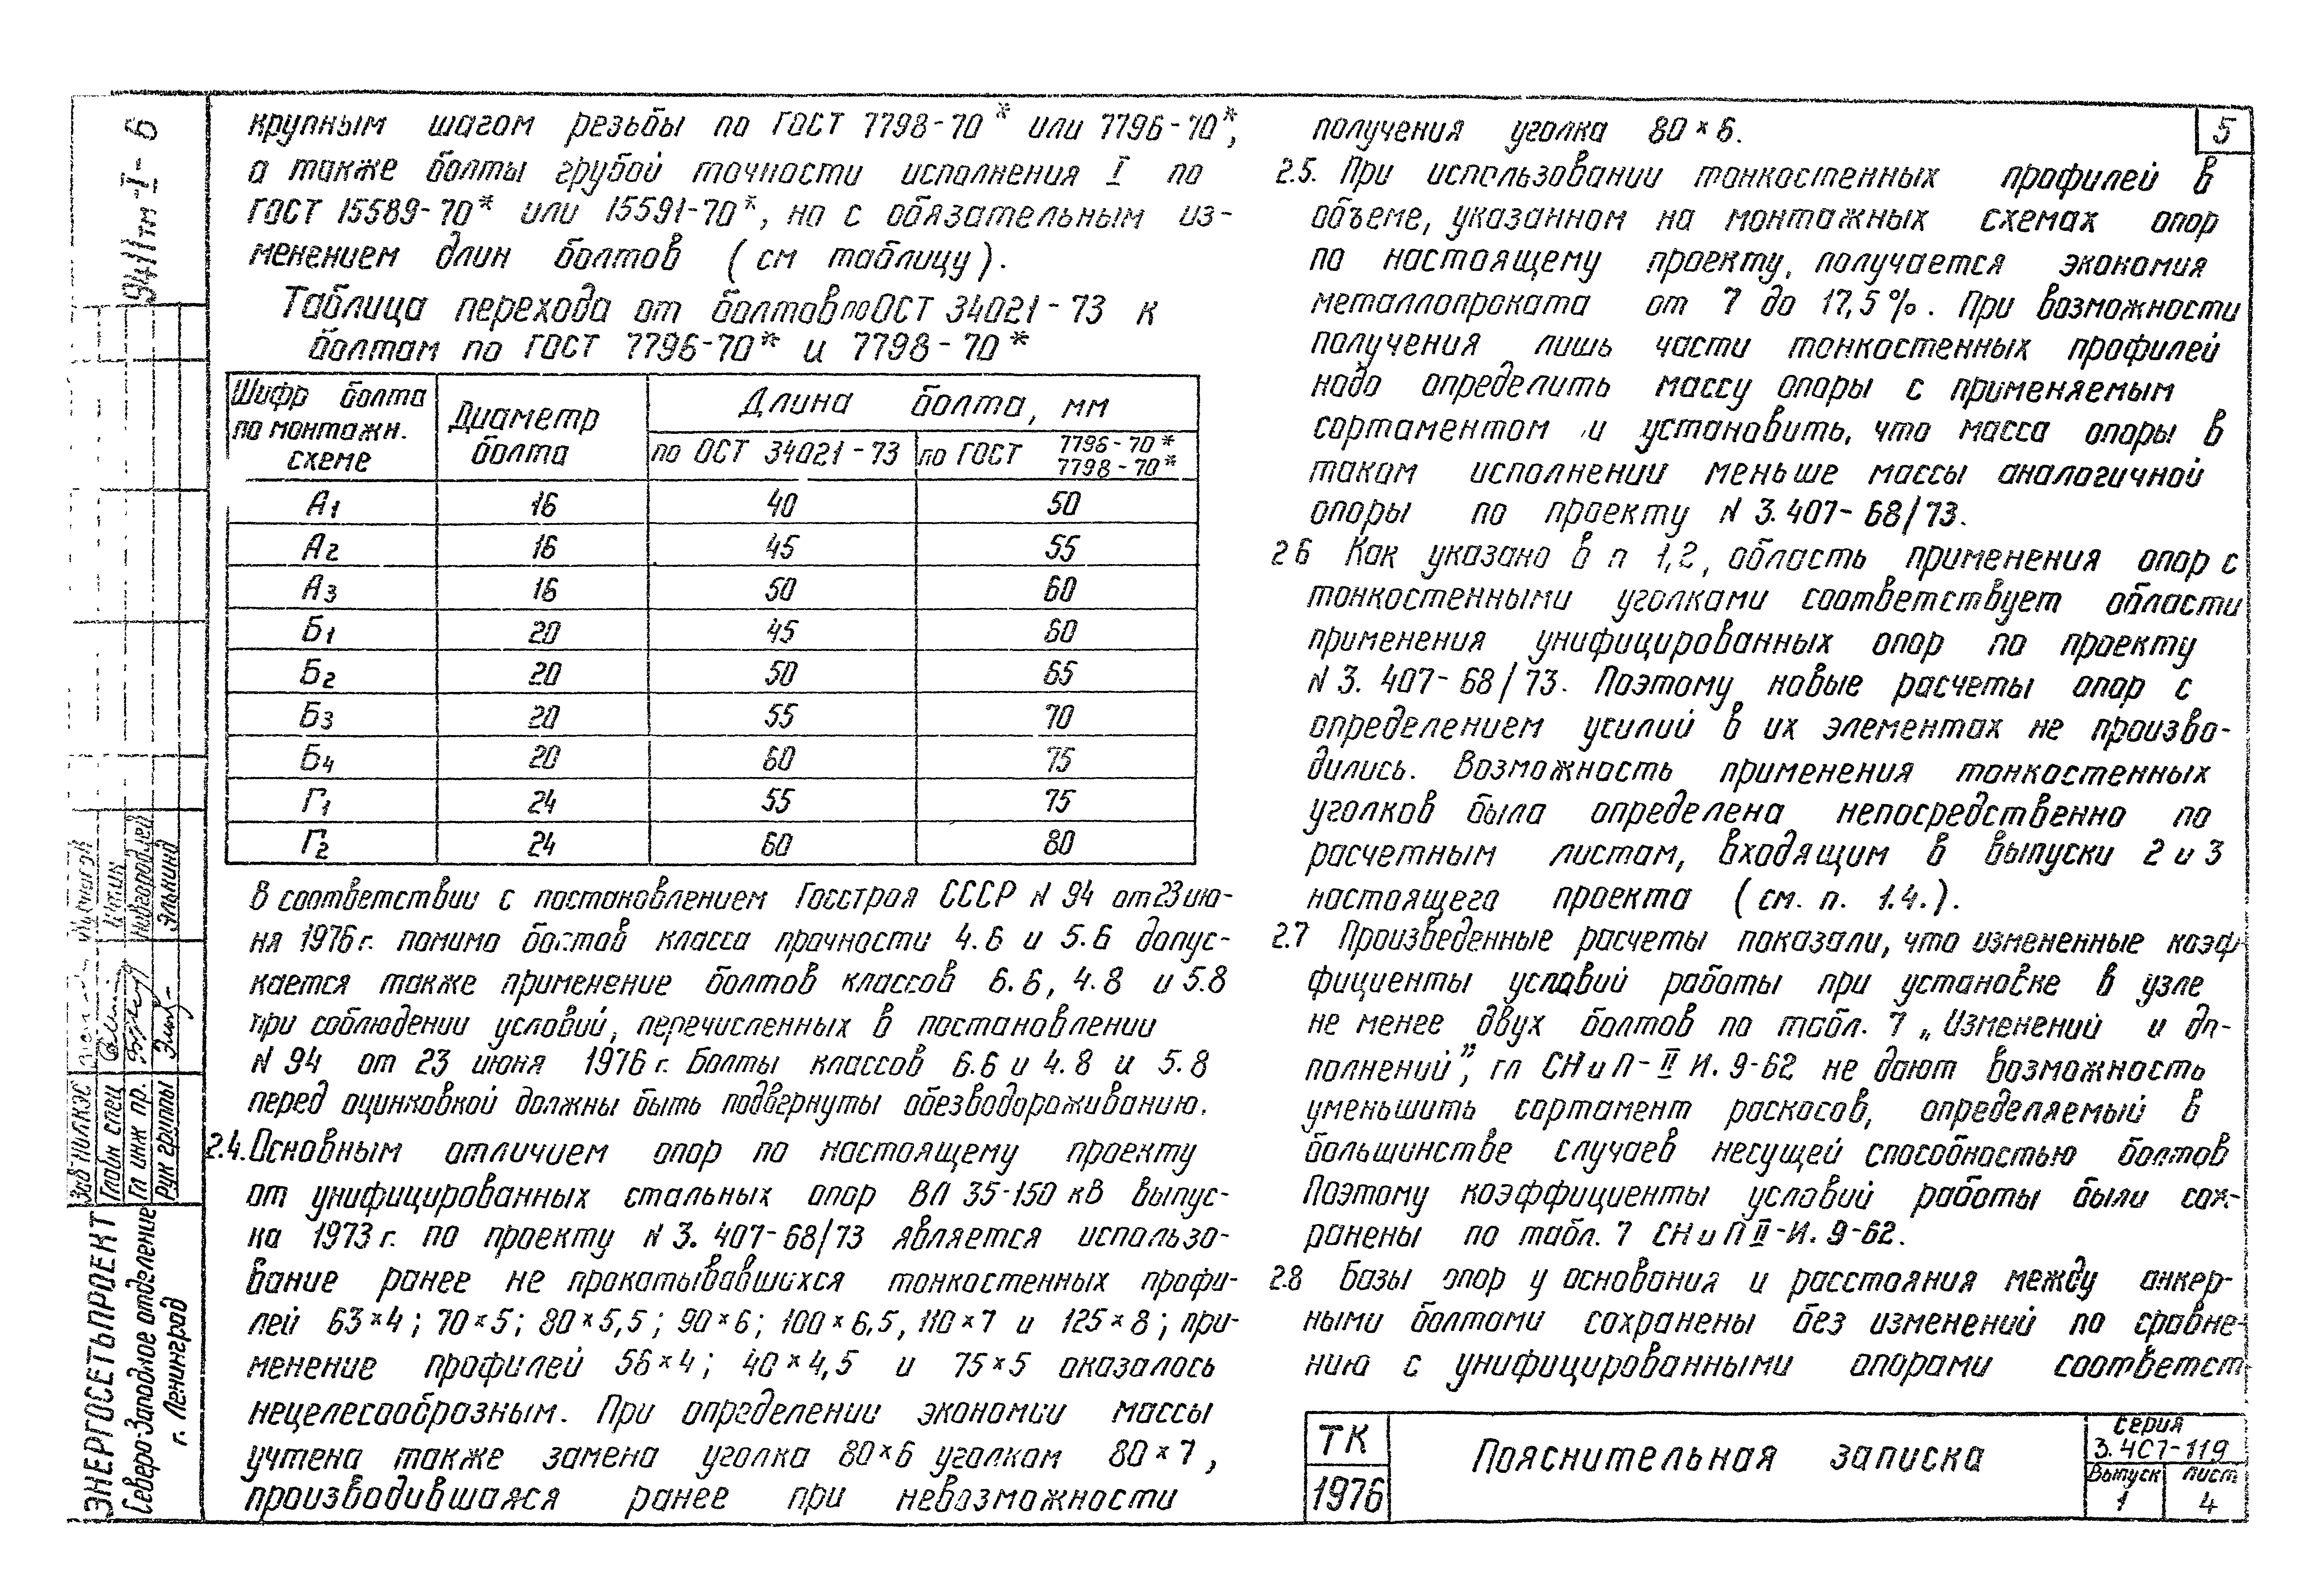 крупным шагом резьбы по ГОСТ 7798-70* или 7796-70*,
а также болты грубой точности исполнения I по
ГОСТ 15589-70* или 15591-70*, но с обязательным из-
менением длин болтов (см таблицу).
Таблица перехода от болтов по ОСТ 34021-73 к
болтам по ГОСТ 7796-70* и 7798-70*
Шифр болта по монтажн. схеме | Диаметр болта | Длина болта, мм
по ОСТ 34021-73 | по ГОСТ 7796-70* 7798-70*
А1 16 40 50
А2 16 45 55
А3 16 50 60
Б1 20 45 60
Б2 20 50 65
Б3 20 55 70
Б4 20 60 75
Г1 24 55 75
Г2 24 60 80
В соответствии с постановлением Госстроя СССР N 94 от 23 ию-
ня 1976г. помимо болтов класса прочности 4.6 и 5.6 допус-
кается также применение болтов классов 6.6, 4.8 и 5.8
при соблюдении условий, перечисленных в постановлении
N 94 от 23 июня 1976г. Болты классов 6.6 и 4.8 и 5.8
перед оцинковкой должны быть подвергнуты обезводораживанию.
2.4. Основным отличием опор по настоящему проекту
от унифицированных стальных опор ВЛ 35-150 кВ выпус-
ка 1973г. по проекту N 3.407-68/73 является использо-
вание ранее не прокатывавшихся тонкостенных профи-
лей 63×4; 70×5; 80×5,5; 90×6; 100×6,5, 110×7 и 125×8; при-
менение профилей 56×4; 40×4,5 и 75×5 оказалось
нецелесообразным. При определении экономии массы
учтена также замена уголка 80×6 уголком 80×7,
производившаяся ранее при невозможности
5
получения уголка 80×6.
2.5. При использовании тонкостенных профилей в
объеме, указанном на монтажных схемах опор
по настоящему проекту, получается экономия
металлопроката от 7 до 17,5%. При возможности
получения лишь части тонкостенных профилей
надо определить массу опоры с применяемым
сортаментом и установить, что масса опоры в
таком исполнении меньше массы аналогичной
опоры по проекту N 3.407-68/73.
2 6 Как указано в п 1,2, область применения опор с
тонкостенными уголками соответствует области
применения унифицированных опор по проекту
N 3.407-68/73. Поэтому новые расчеты опор с
определением усилий в их элементах не произво-
дились. Возможность применения тонкостенных
уголков была определена непосредственно по
расчетным листам, входящим в выпуски 2 и 3
настоящего проекта (см. п. 1.4.).
2.7 Произведенные расчеты показали, что измененные коэф-
фициенты условий работы при установке в узле
не менее двух болтов по табл. 7 „Изменений и до-
полнений”, гл СНиП-II И.9-62 не дают возможность
уменьшить сортамент раскосов, определяемый в
большинстве случаев несущей способностью болтов
Поэтому коэффициенты условий работы были сох-
ранены по табл. 7 СНиП II-И.9-62.
2.8 Базы опор у основания и расстояния между анкер-
ными болтами сохранены без изменений по сравне-
нию с унифицированными опорами соответст-
ТК
1976
Пояснительная записка
серия
3.407-119
Выпуск
1
лист
4
9411тм-I-6
Зав НИЛКЭС
Главн спец
Гл инж пр.
Рук группы
Элькинд
ЭНЕРГОСЕТЬПРОЕКТ
Северо-Западное отделение
г. Ленинград